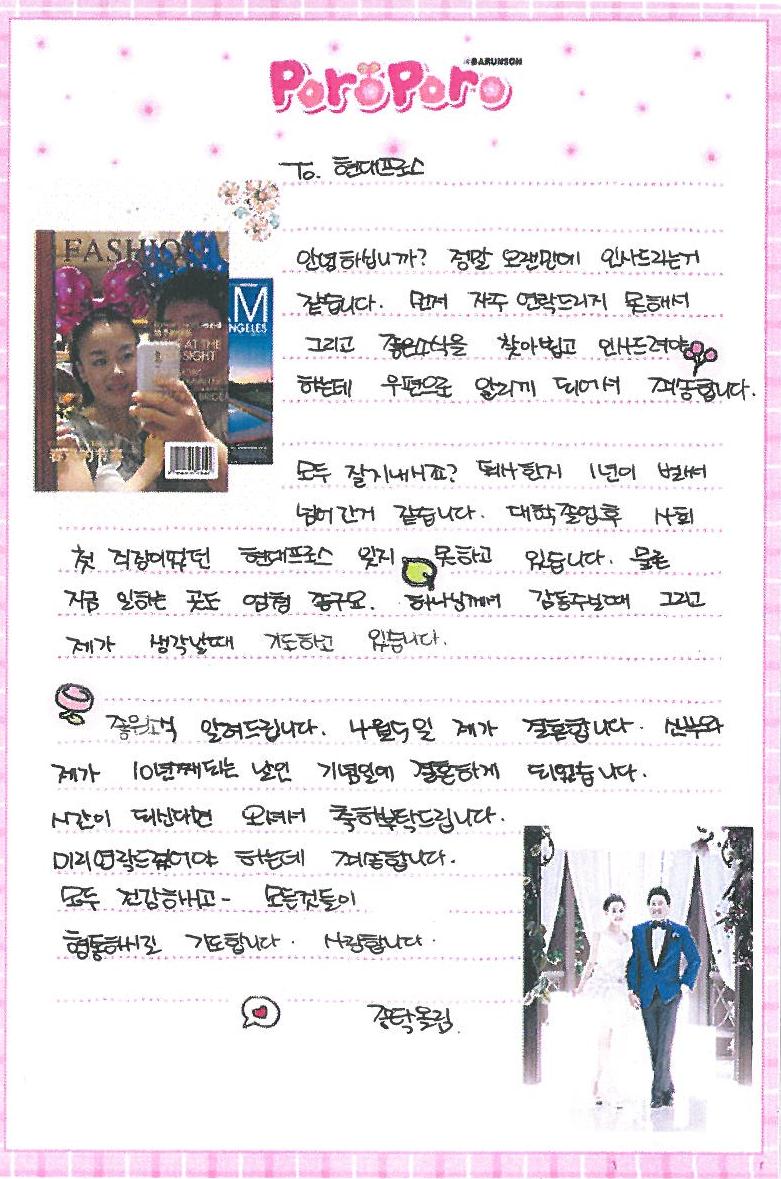 BARUNSON
PoroPoro
To. 현대프로스
안녕하십니까? 정말 오랜만에 인사드리는거
같습니다. 먼저 자주 연락드리지 못해서
그리고 좋은소식을 찾아뵙고 인사드려야
하는데 우편으로 알리게 되어서 죄송합니다.
FASHION
AM
ANGELES
AT THE
SIGHT
BRIDE
모두 잘지내시죠? 퇴사한지 1년이 벌써
넘어간거 같습니다. 대학졸업후 사회
첫 직장이었던 현대프로스 잊지 못하고 있습니다. 물론
지금 일하는 곳도 엄청 좋구요. 하나님께서 감동주실때 그리고
제가 생각날때 기도하고 있습니다.
좋은소식 알려드립니다. 4월5일 제가 결혼합니다. 신부와
제가 10년째되는 날인 기념일에 결혼하게 되었습니다.
시간이 되신다면 오셔서 축하부탁드립니다.
미리연락드렸어야 하는데 죄송합니다.
모두 건강하시고- 모든것들이
형통하시길 기도합니다. 사랑합니다.
올림.